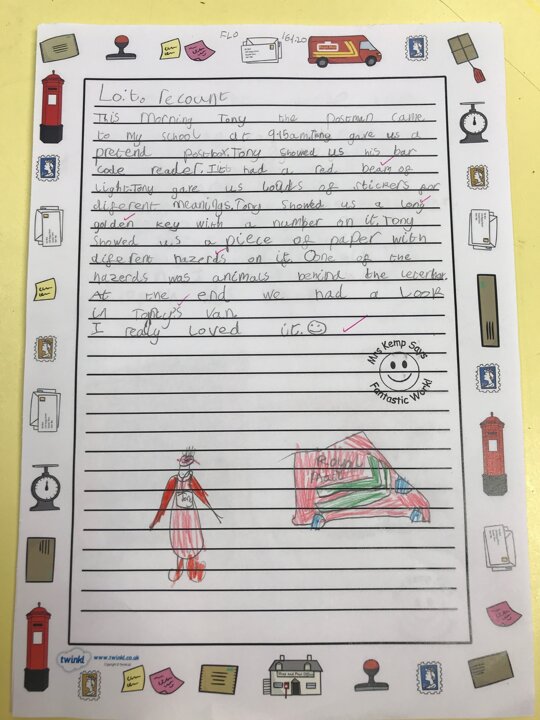 FLO 16.1.20
L.o.i.t. recount
This Morning Tony the Postman came
to my school at 9:15am.Tony gave us a
pretend postbox.Tony showed us his bar
code reader.It had a red beam of
light.Tony gave us louds of stickers for
different meanings.Tony showed us a long
golden key with a number on it.Tony
showed us a piece of paper with
different hazerds on it. One of the
hazerds was animals behind the letterbox.
At the end we had a Look
in Tony's van
I really loved it.
Mrs Kemp Says
Fantastic Work!
Tony
Royal
Mail
twinkl www.twinkl.co.uk
Post and Post Office